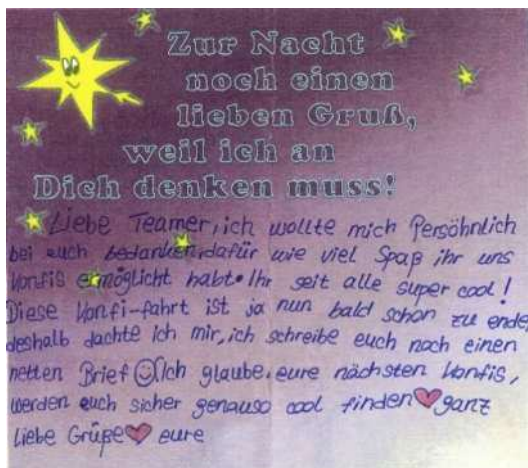 Zur Nacht
noch einen
lieben Gruß,
weil ich an
Dich denken muss!
Liebe Teamer, ich wollte mich Persöhnlich
bei euch bedanken, dafür wie viel Spaß ihr uns
Konfis ermöglicht habt. Ihr seit alle super cool!
Diese Konfi-fahrt ist ja nun bald schon zu ende,
deshalb dachte ich mir, ich schreibe euch noch einen
netten Brief☺Ich glaube, eure nächsten Konfis,
werden euch sicher genauso cool finden♥ganz
liebe Grüße♥ eure